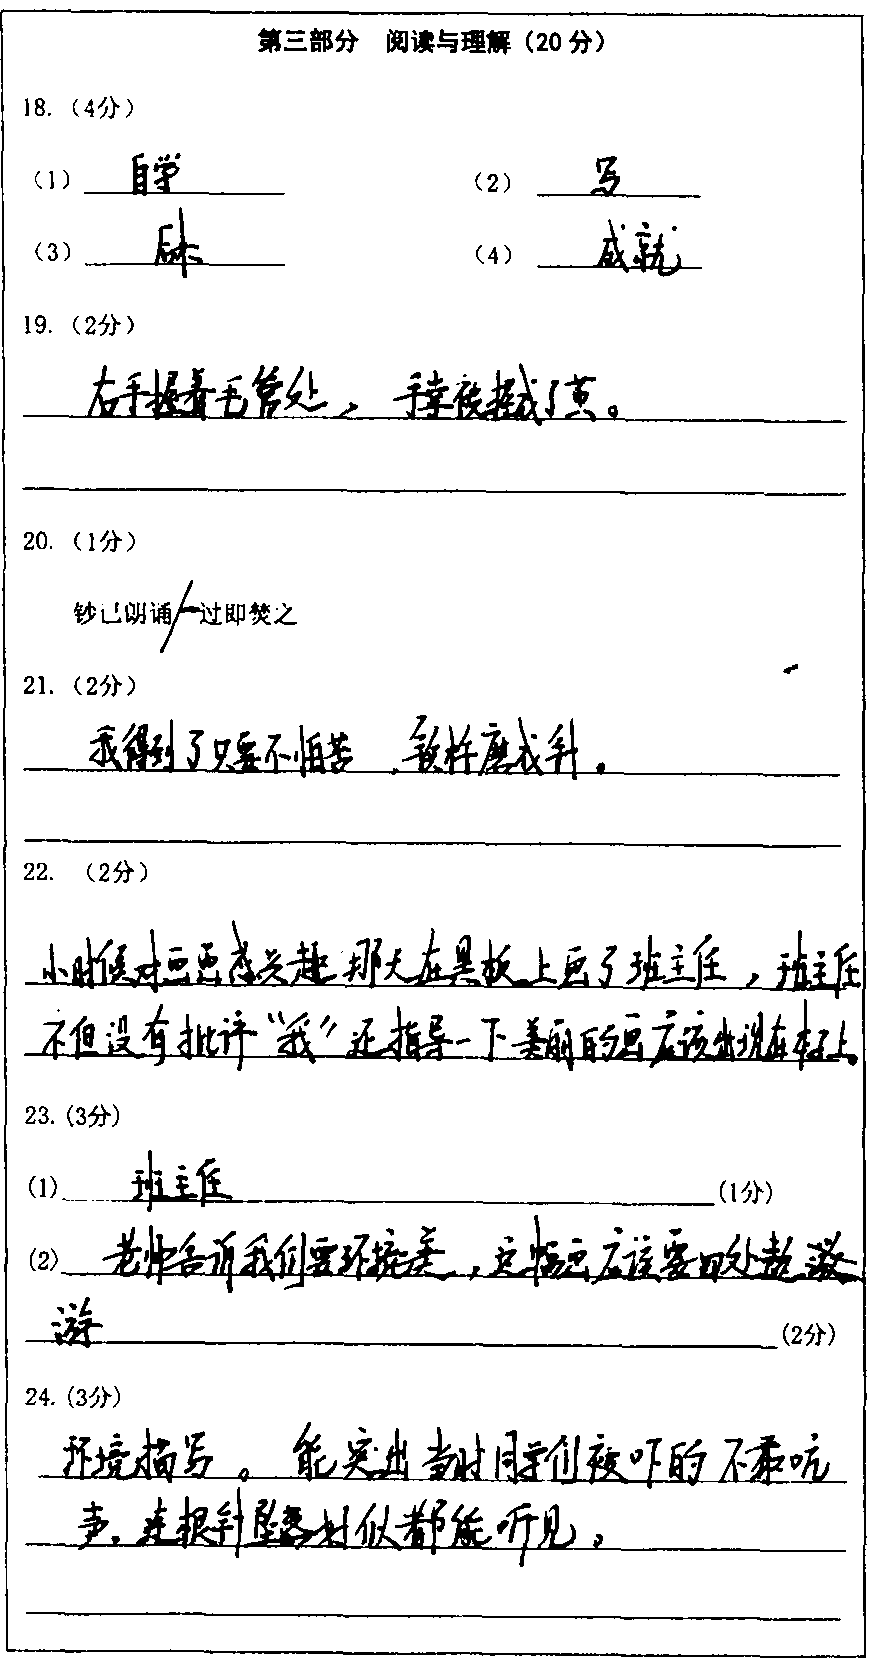 第三部分 阅读与理解（20分）
18.（4分）
（1） 自学 （2） 写
（3） （4） 成就
19.（2分）
右手握着毛管处，手掌被握成了黄。
20.（1分）
钞已朗诵/一过即焚之
21.（2分）
我得到了只要不怕苦，铁杵磨成针。
22. （2分）
小时候对画画感兴趣那天在黑板上画了班主任，班主任
不但没有批评“我”还指导一下美丽的画应该出现在本子上。
23.(3分)
(1) 班主任 (1分)
(2) 老师告诉我们要环境美，这幅画应该要四处敖
游 (2分)
24.(3分)
环境描写。能突出当时同学们被吓的不敢吭
声，连根针坠落好似都能听见。